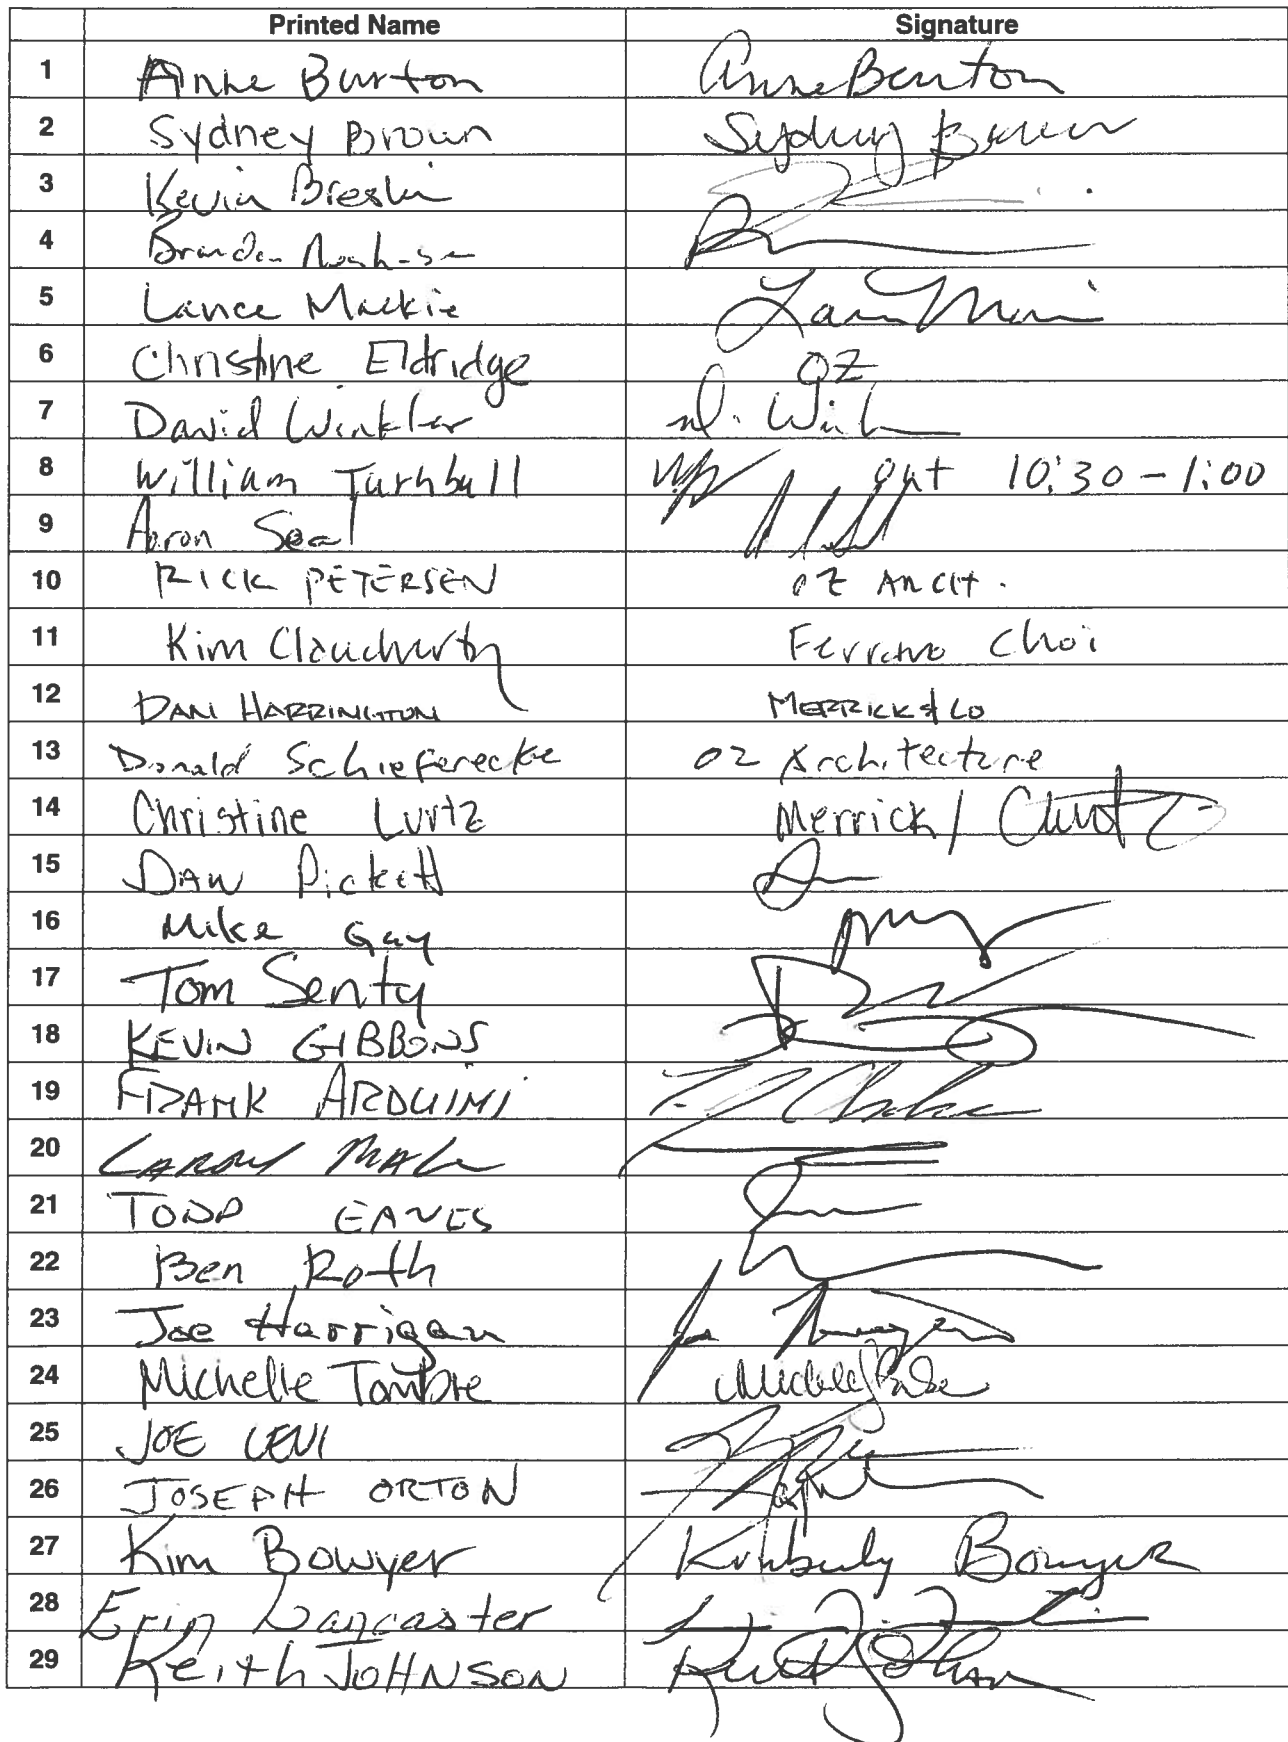 Printed Name Signature
1 Anne Burton Anne Burton
2 Sydney Brown Sydney Brown
3 Kevin Breslin
4
5 Lance Mackie
6 Christine Eldridge OZ
7 David Winkler D. Win
8 William Turnbull out 10:30 - 1:00
9 Aaron Seal
10 RICK PETERSEN OZ ARCH.
11 Kim Claucherty Ferraro Choi
12 DAN HARRINGTON MERRICK & CO
13 Donald Schieferecke OZ Architecture
14 Christine Lurtz Merrick /
15 DAN Pickett
16 Mike Gay
17 Tom Senty
18 KEVIN GIBBONS
19 FRANK ARDUINI
20 LARRY
21 TODD EAVES
22 Ben Roth
23 Joe Harrigan
24 Michelle Tombre
25 JOE LEVI
26 JOSEPH ORTON
27 Kim Bowyer Kimberly Bowyer
28 Erin Lancaster
29 Keith JOHNSON